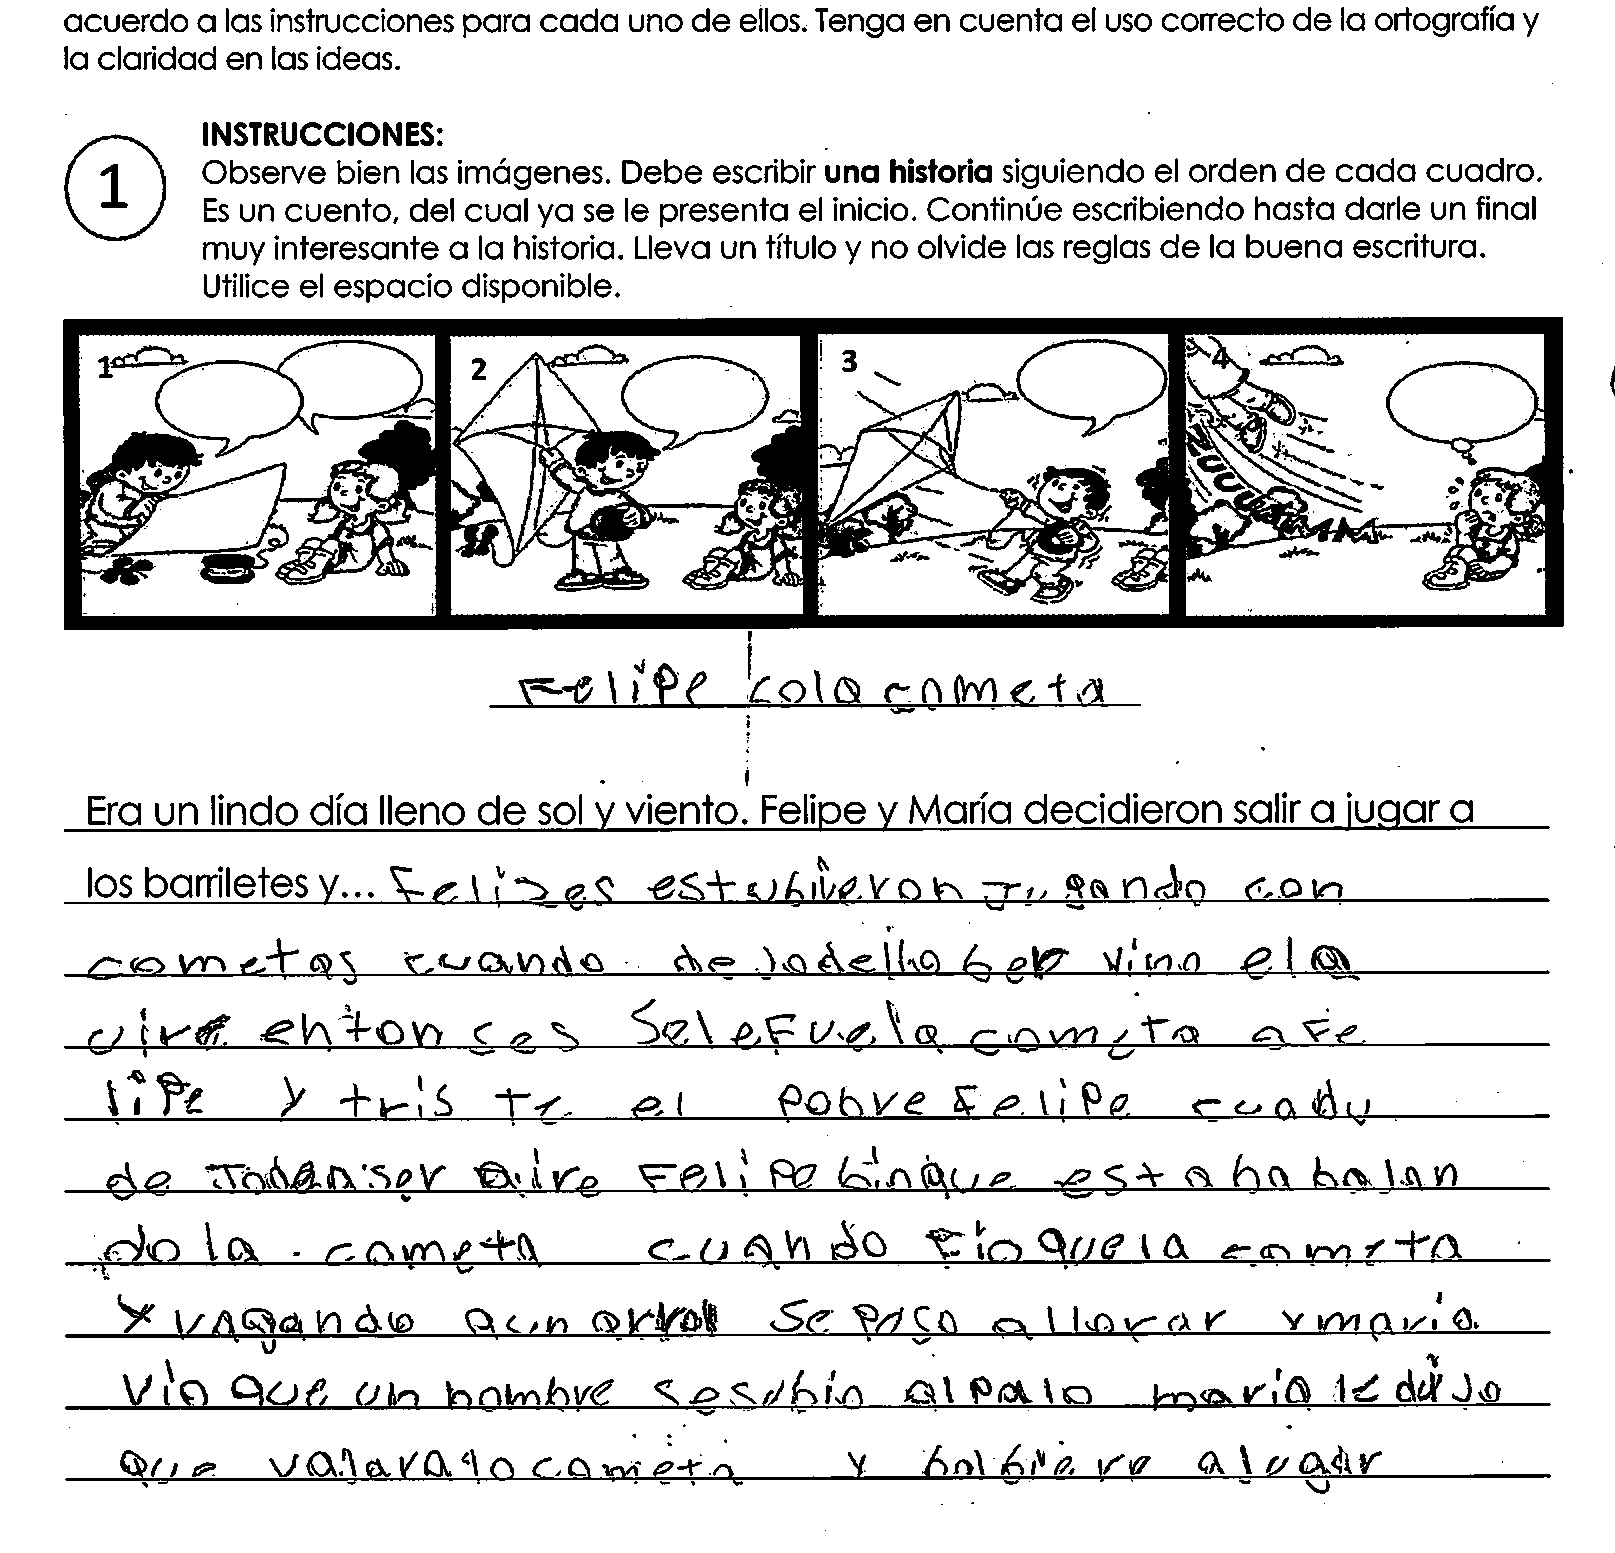 acuerdo a las instrucciones para cada uno de ellos. Tenga en cuenta el uso correcto de la ortografía y
la claridad en las ideas.
1
INSTRUCCIONES:
Observe bien las imágenes. Debe escribir una historia siguiendo el orden de cada cuadro.
Es un cuento, del cual ya se le presenta el inicio. Continúe escribiendo hasta darle un final
muy interesante a la historia. Lleva un título y no olvide las reglas de la buena escritura.
Utilice el espacio disponible.
1
2
3
4
Felipe cola cometa
Era un lindo día lleno de sol y viento. Felipe y María decidieron salir a jugar a
los barriletes y... Felizes estubieron jugando con
cometas cuando vino el a
entonses Selefuela cometa a Fe
lipe y triste el pobre Felipe
de aire Felipe estaba balan
do la cometa cuando que la cometa
se puso allorar y maria
vio que un hombre sesubio al palo maria le dijo
que y bolbiero a jugar